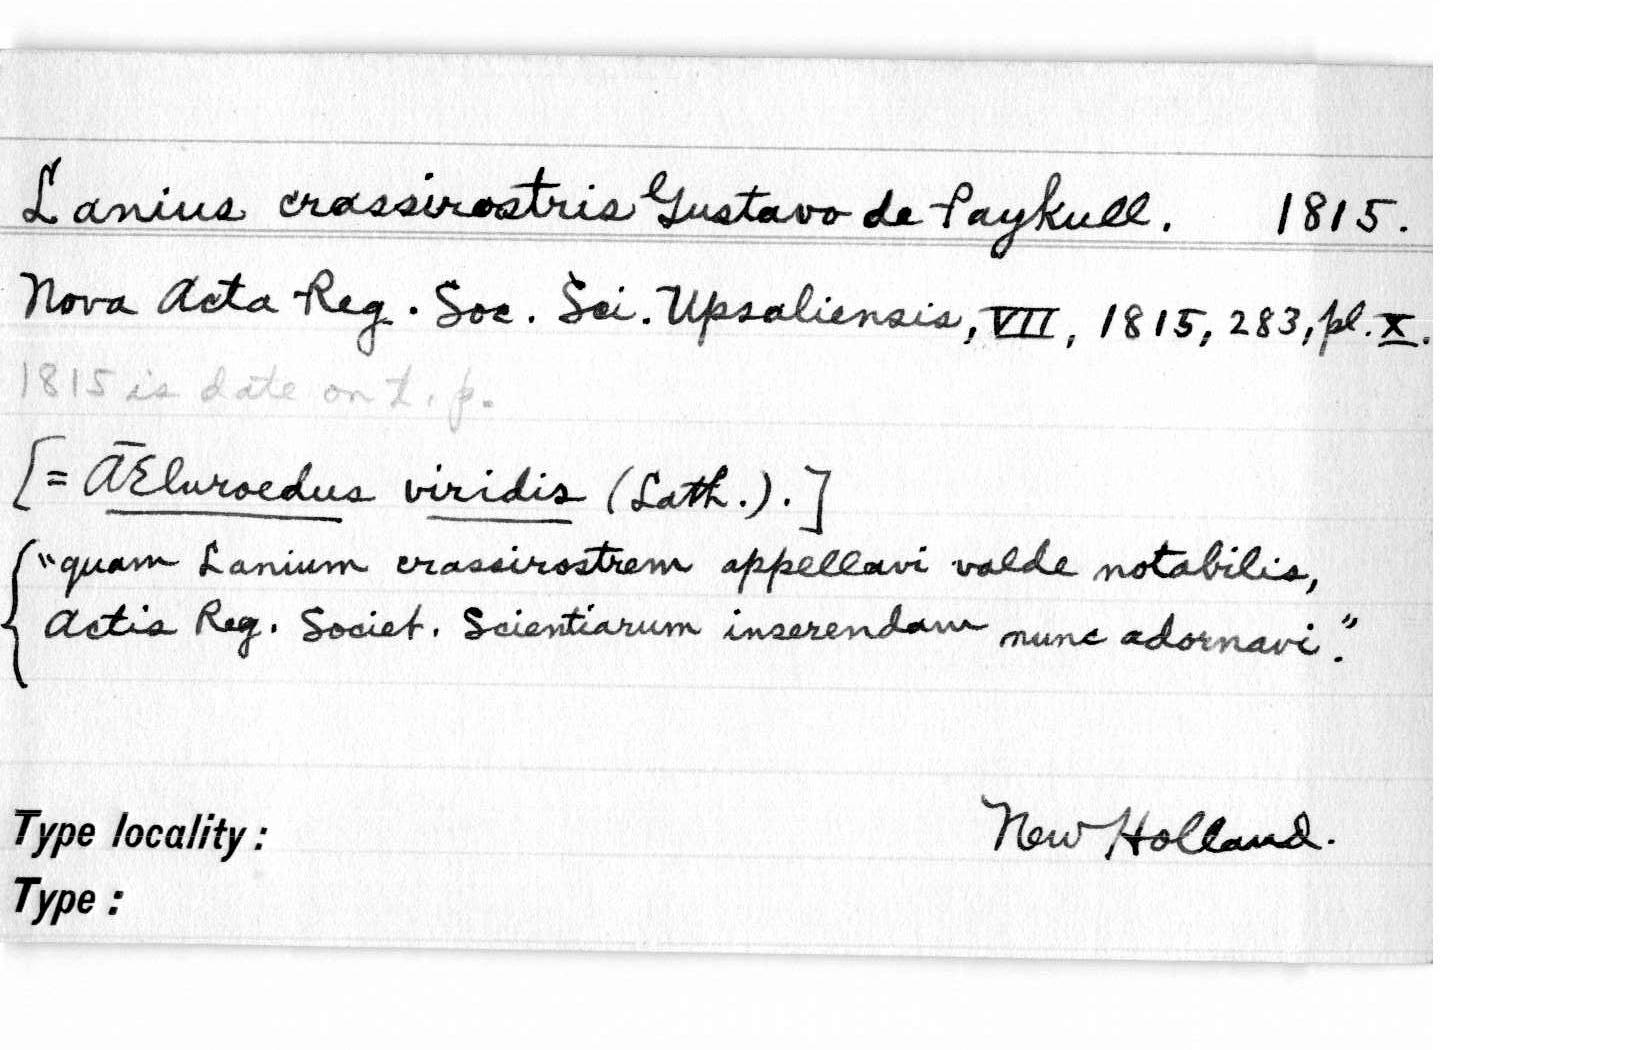 Lanius crassirostris Gustavo de Paykull. 1815.
Nova Acta Reg. Soc. Sci. Upsaliensis, VII, 1815, 283, pl. X.
1815 is date on t. p.
[= ÆEluroedus viridis (Lath.).]
"quam Lanium crassirostrem appellavi valde notabilis,
Actis Reg. Societ. Scientiarum inserendam nunc adornavi."
Type locality: New Holland.
Type: